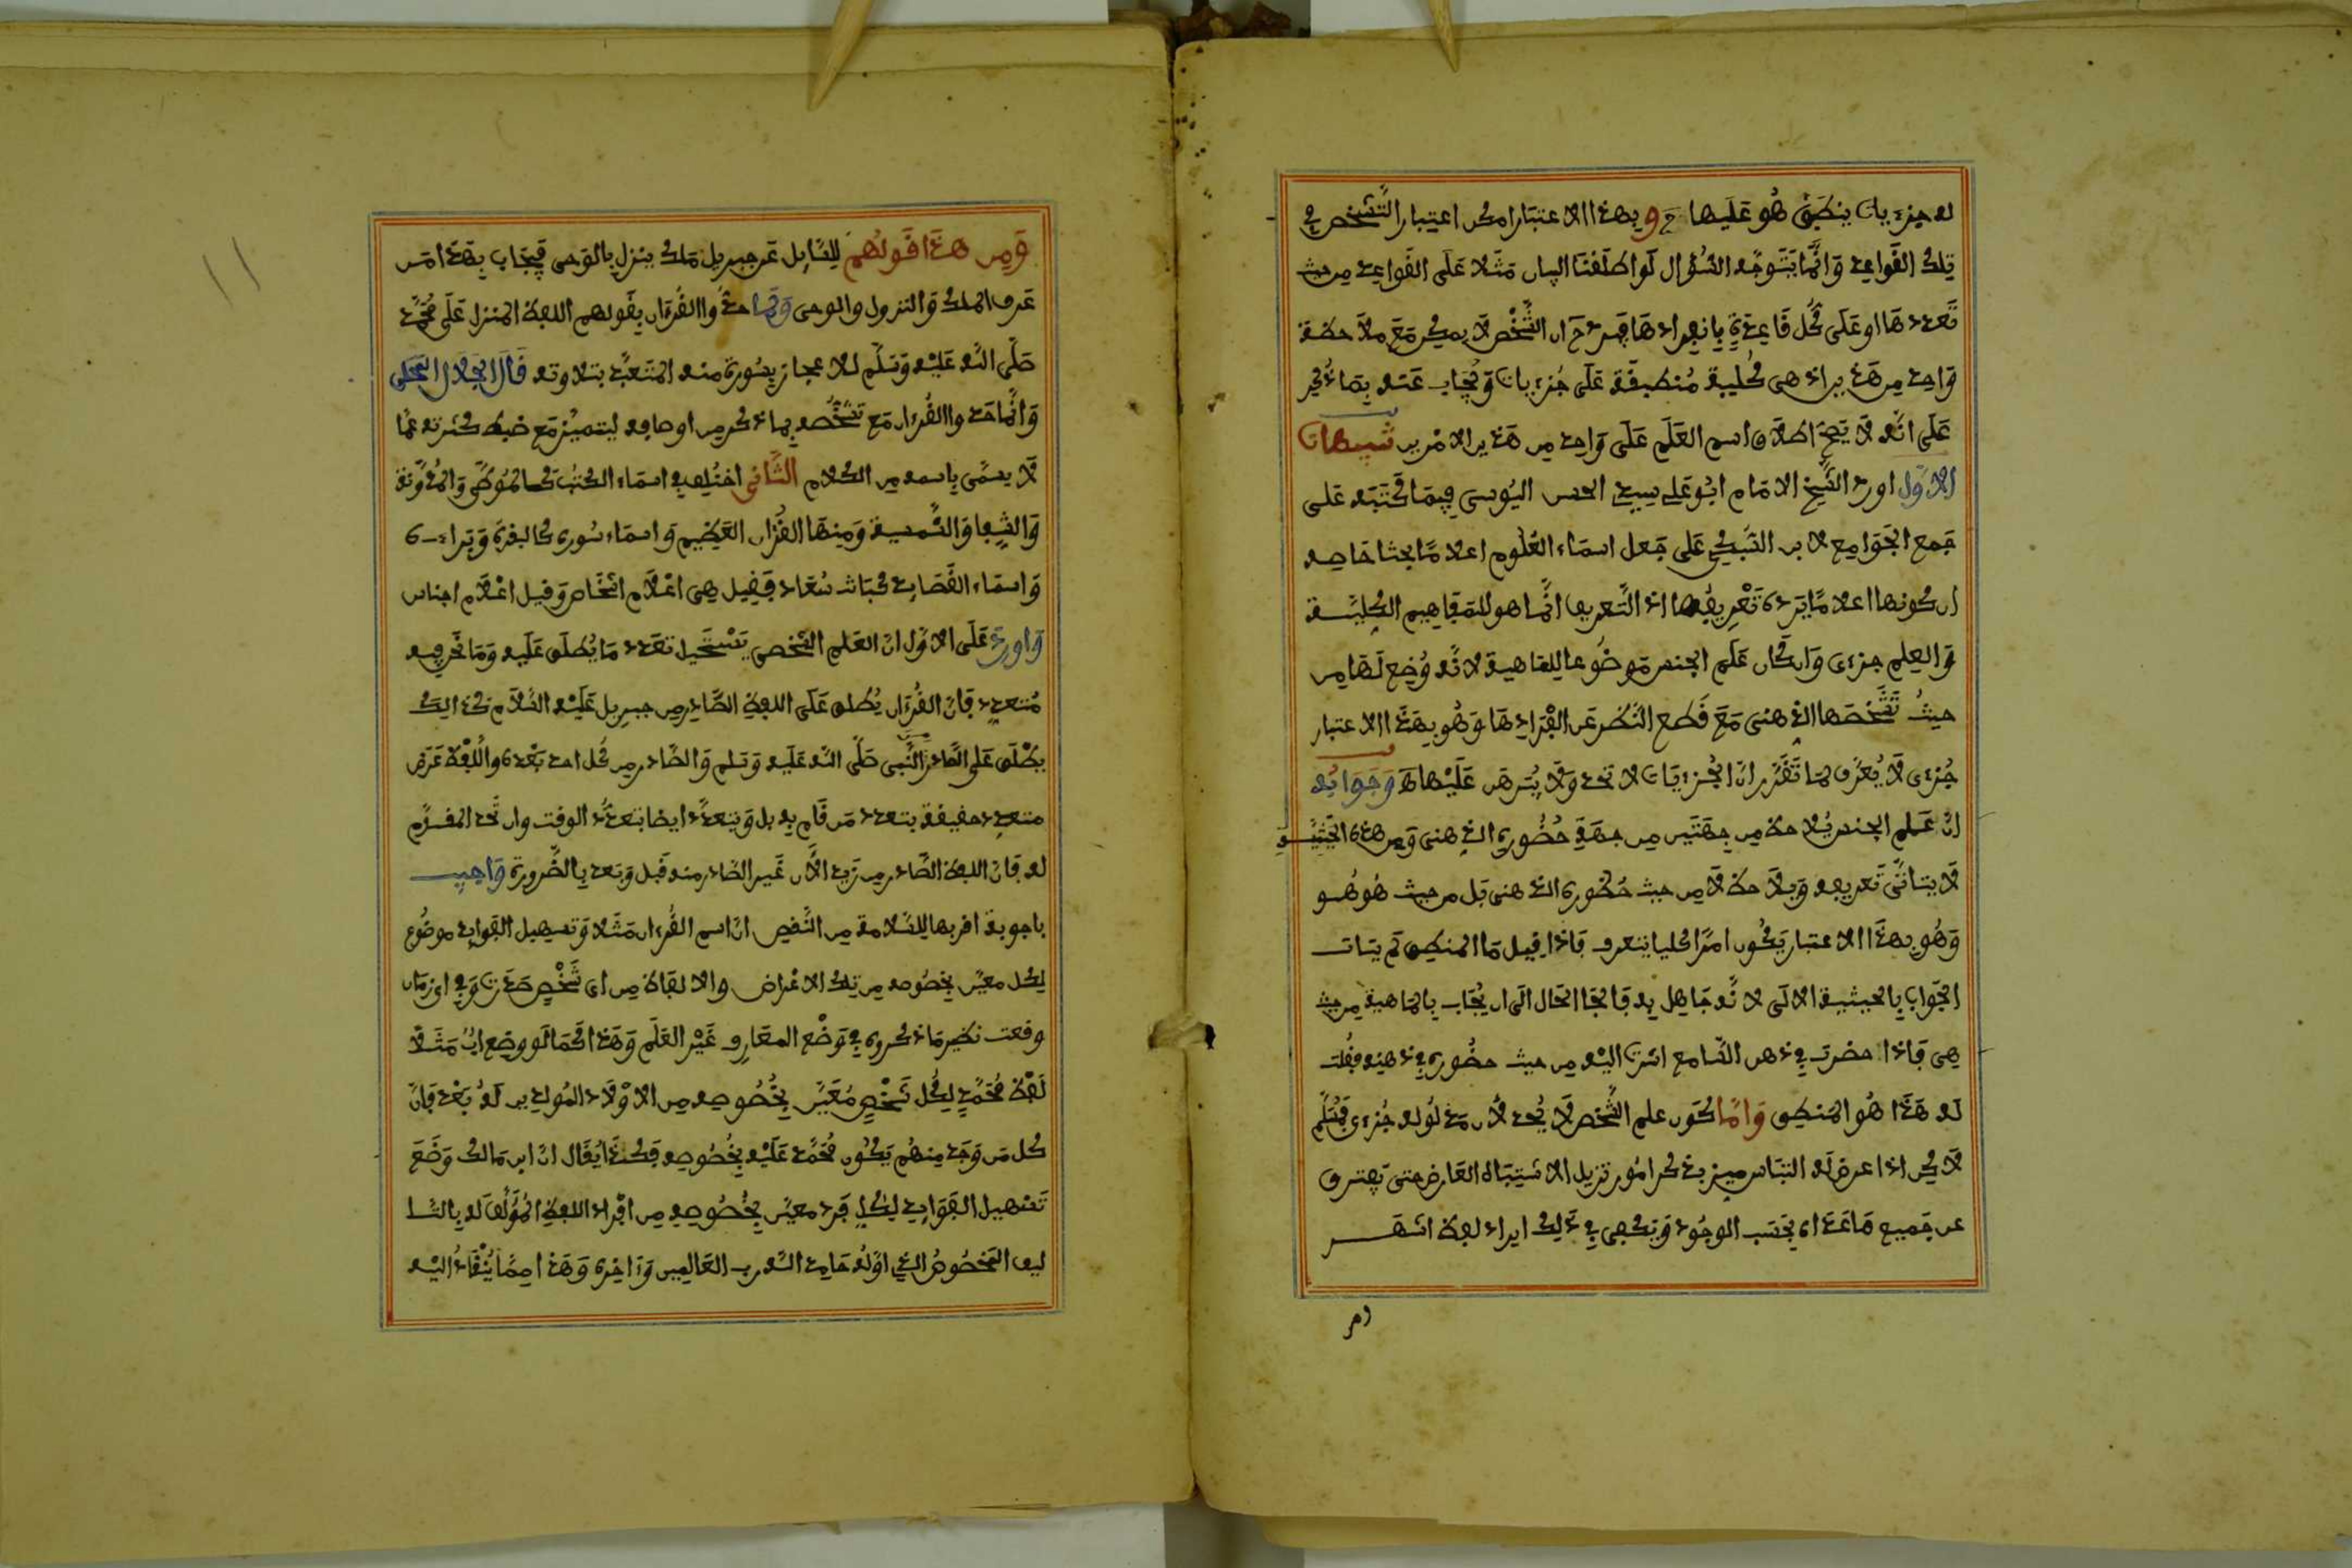 له جزءيات ينطبق هو عليها ح وبهذا الاعتبار امكن اعتبار التشخص في
تلك القواعد وانما يتوجه السؤال لو اطلقنا البيان مثلا على القواعد من حيث
تعددها او على كل قاعدة بانفرادها ان الشخص لا يمكن مع ملاحظة
واحد من هذين اذ هي كلية منطبقة على جزءيات ويجاب عنه بما ذكر
على انه لا يصح اطلاق اسم العلم على واحد من هذين الامرين تنبيهات
الاول اورد الشيخ الامام ابو علي سيدي الحسن اليوسي فيما كتبه على
جمع الجوامع لابن السبكي على جعل اسماء العلوم اعلاما بحثا حاصله
ان كونها اعلاما يرده تعريفها اذ التعريف انما هو للمفاهيم الكلية
والعلم جزءي وان كان علم الجنس موضوعا للماهية لانه وضع لها من
حيث تشخصها الذهني مع قطع النظر عن افرادها وهو بهذا الاعتبار
جزءي لا يعرف لما تقرر ان الجزءيات لا تحد ولا يبرهن عليها ه وجوابه
ان علم الجنس يلاحظ من جهتين من جهة حضوره الذهني ومن هذه الحيثية
لا يتاتى تعريفه ويلاحظ لا من حيث حضوره الذهني بل من حيث هو هو
وهو بهذا الاعتبار يكون امرا كليا يتعرف فاذا قيل ما المنطق لم يتات
الجواب بالحيثية الاولى لانه جاهل به فالجا الحال الى ان يجاب بالماهية من حيث
هي فاذا حضرت في ذهن السامع اشرت اليه من حيث حضوره في ذهنه فقلت
له هذا هو المنطق واما كون علم الشخص لا يحد لان مدلوله جزءي فمسلم
لاكن اذا عرض له التباس ميز بذكر امور تزيل الاشتباه العارض حتى يفترق
عن جميع ما عداه بحسب الوجود ويكفي في ذلك ايراد لفظ اشهر
ومن
ومن هذا قولهم للسايل عن جبريل ملك ينزل بالوحي فيجاب بهذا من
عرف الملك والنزول والوحي وكما حدوا القرءان بقولهم اللفظ المنزل على محمد
صلى الله عليه وسلم للاعجاز بسورة منه المتعبد بتلاوته قال الجلال المحلي
وانما حدوا القرءان مع تشخصه بما ذكر من اوصافه ليتميز مع ضبط كثرته عما
لا يسمى باسمه من الكلام الثاني اختلف في اسماء الكتب كالموطى والمدونة
والشفا والشمسية ومنها القرءان العظيم واسماء سوره كالبقرة وبراءة
واسماء القصايد كبانت سعاد فقيل هي اعلام اشخاص وقيل اعلام اجناس
واورد على الاول ان العلم الشخصي يستحيل تعدد ما يطلق عليه وما نحن فيه
متعدد فان القرءان يطلق على اللفظ الصادر من جبريل عليه السلام كذالك
يطلق على الصادر من النبي صلى الله عليه وسلم والصادر من كل احد بعده واللفظ عرض
متعدد حقيقة بتعدد من قام به بل ويتعدد ايضا بتعدد الوقت وان تحد
له فان اللفظ الصادر من زيد الان غير الصادر منه قبل وبعد بالضرورة واجيب
باجوبة اقربها للسلامة من النقص ان اسم القرءان مثلا وتسهيل الفوايد موضوع
لكل معين بخصوصه من تلك الاغراض والالفاظ من اي شخص صدرت وفي اي زمان
وقعت نظير ما ذكروه في وضع المعارف غير العلم وهذا كما لو وضع اب مثلا
لفظ محمد لكل شخص معين بخصوصه من الاولاد المولودين له بعد فان
كل من وجد منهم يكون محمد عليه بخصوصه فكذا يقال ان ابن مالك وضع
تسهيل الفوايد لكل فرد معين بخصوصه من افراد اللفظ المؤلف له بالتا
ليف المخصوص الذي اوله حامدا لله رب العالمين وءاخره وهذا مما ينقاد اليه